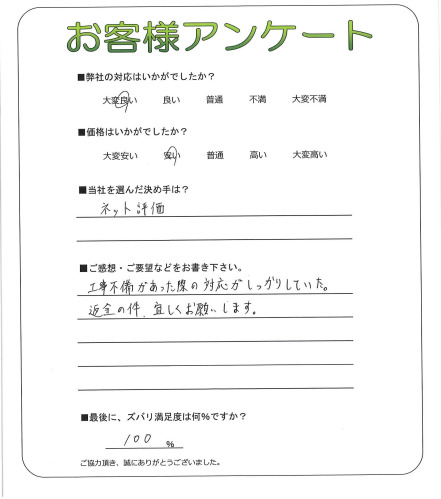 お客様アンケート
■弊社の対応はいかがでしたか？
大変良い 良い 普通 不満 大変不満
■価格はいかがでしたか？
大変安い 安い 普通 高い 大変高い
■当社を選んだ決め手は？
ネット評価
■ご感想・ご要望などをお書き下さい。
工事不備があった際の対応がしっかりしていた。
近全の件、宜しくお願いします。
■最後に、ズバリ満足度は何%ですか？
100 %
ご協力頂き、誠にありがとうございました。